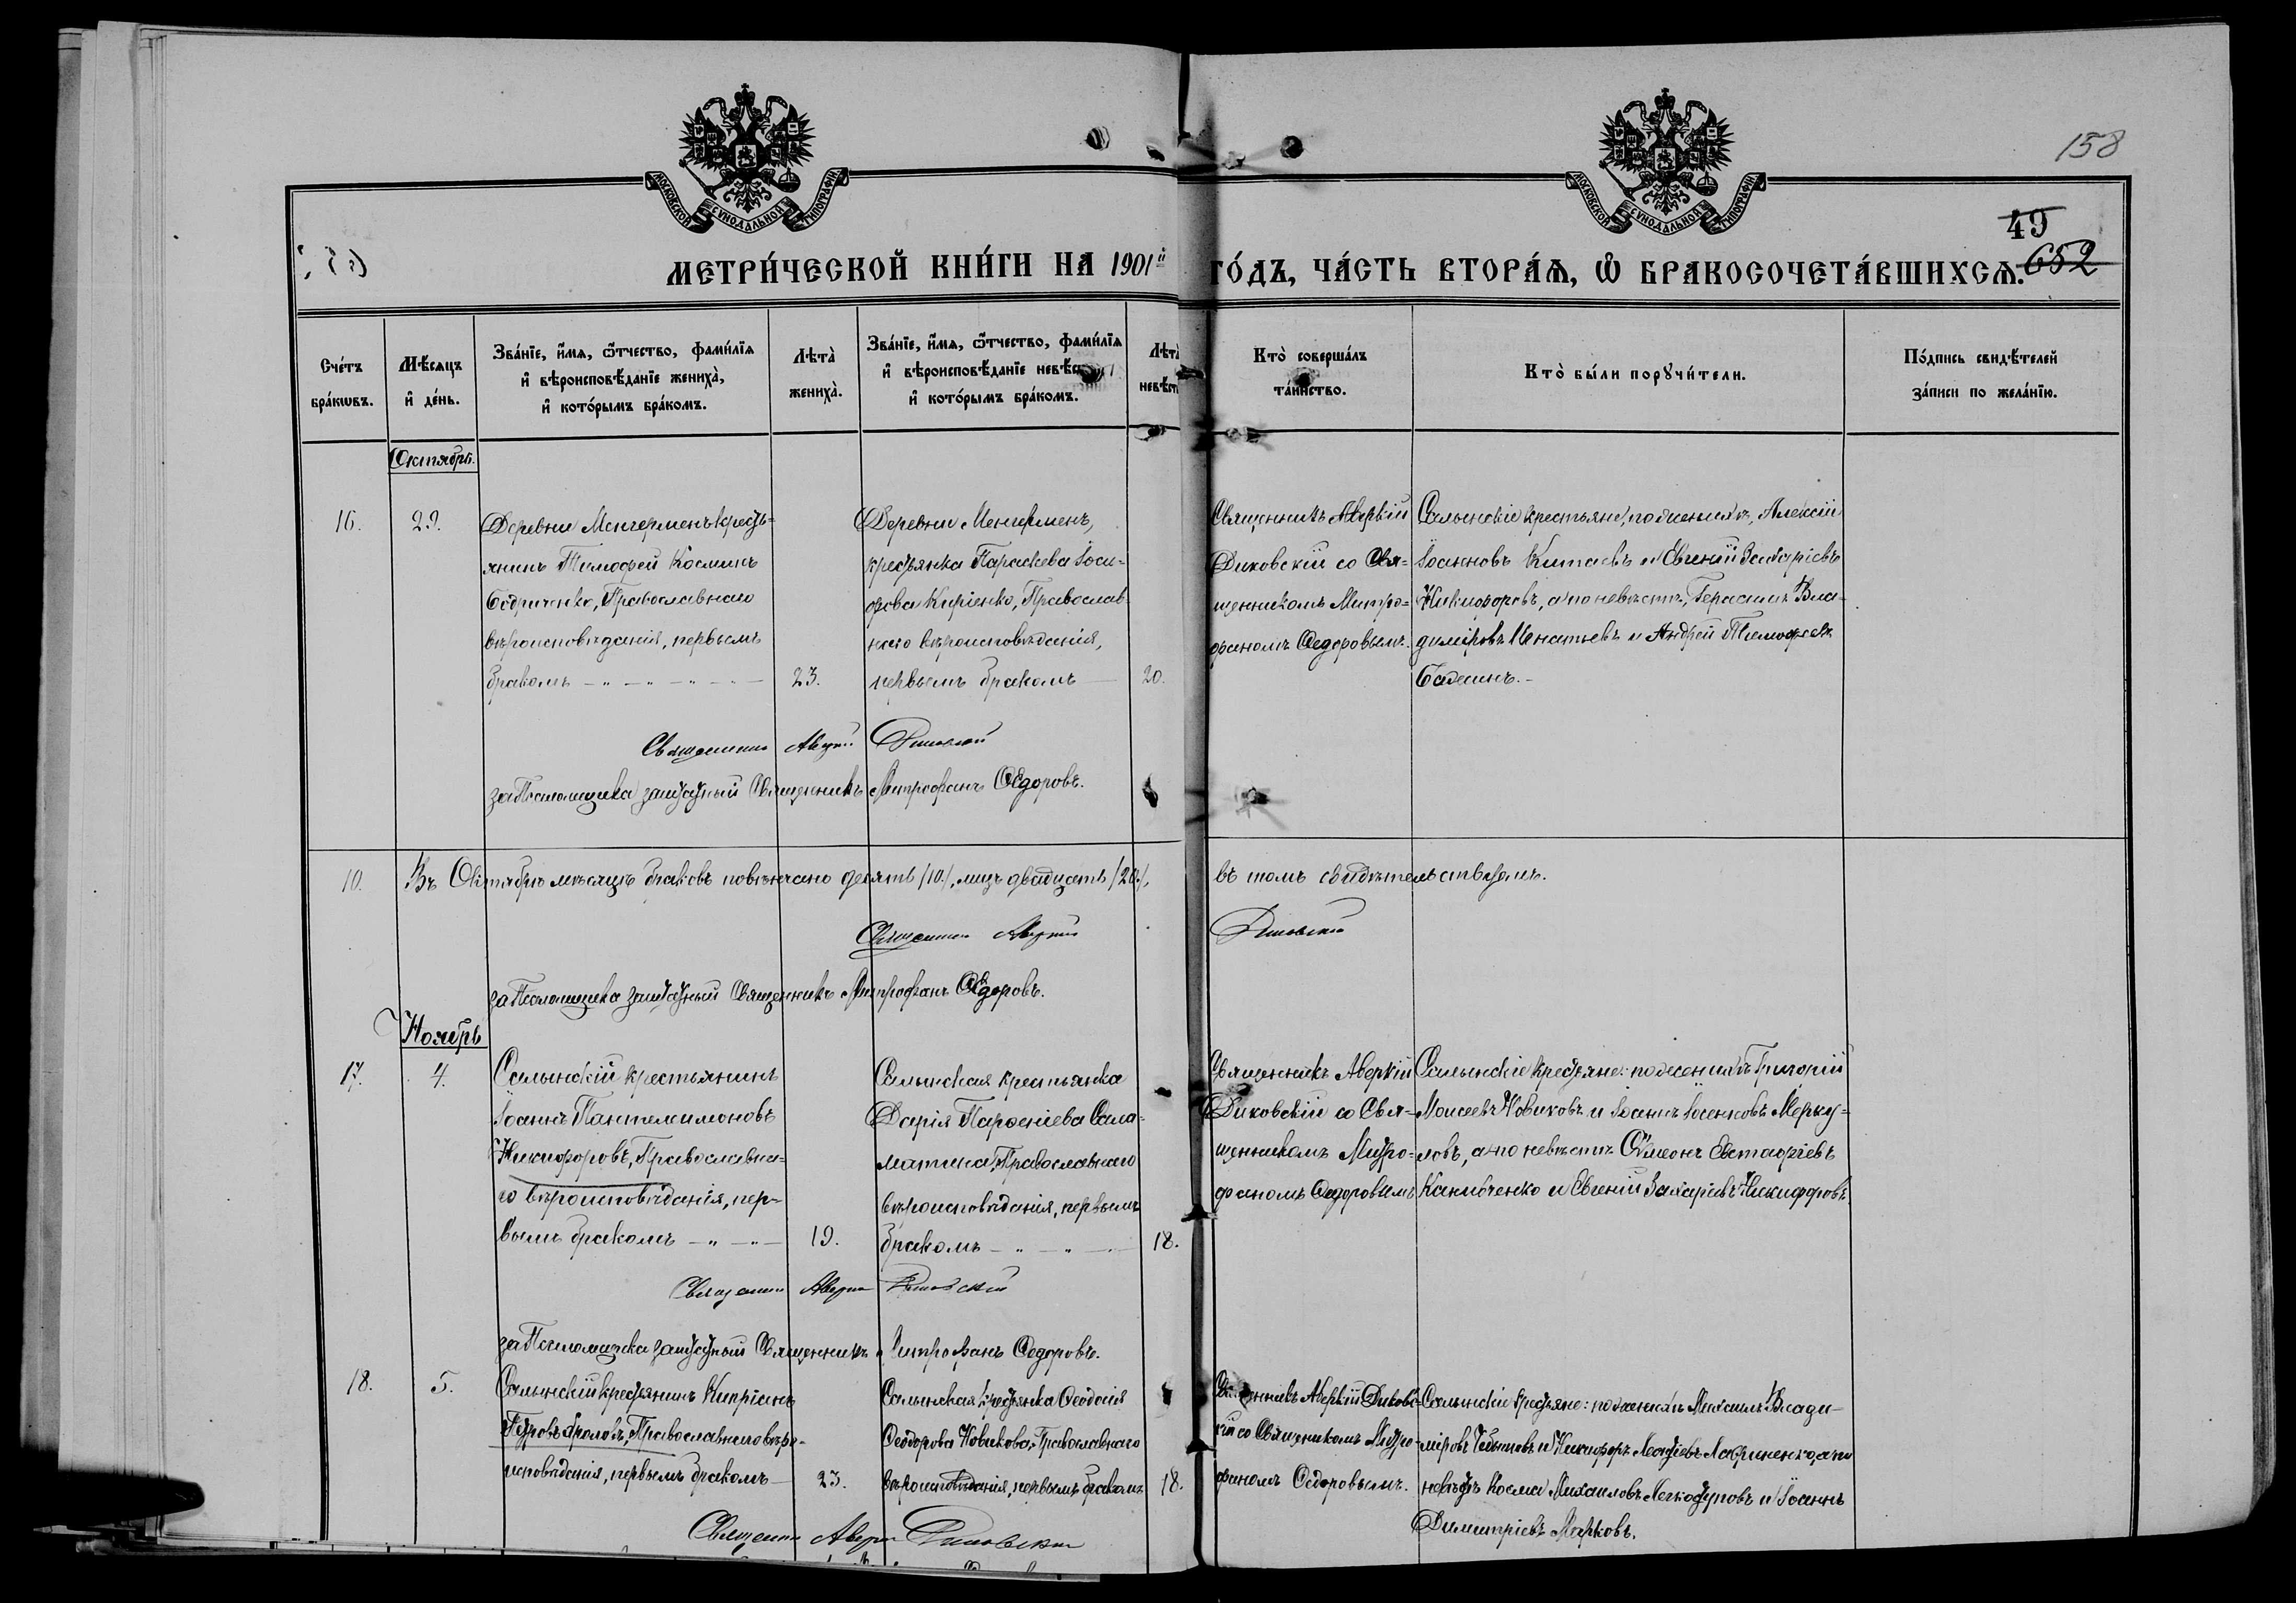 158
49
652
МОСКОВСКОЙ СУНОДАЛЬНОЙ ТИПОГРАФІИ
МОСКОВСКОЙ СУНОДАЛЬНОЙ ТИПОГРАФІИ
МЕТРИ́ЧЕСКОЙ КНИ́ГИ НА 1901й ГО́ДЪ, ЧА́СТЬ ВТОРА́Ѧ, Ѽ БРАКОСОЧЕТА́ВШИХСѦ.
Сче́тъ
бра́кѡвъ.
Мѣ́сѧцъ
и҆ де́нь.
Зва́нїе, и҆́мѧ, ѻ҆́тчество, фами́лїѧ
и҆ вѣроисповѣ́данїе жениха̀,
и҆ кото́рымъ бра́комъ.
Лѣта̀
жениха̀.
Зва́нїе, и҆́мѧ, ѻ҆́тчество, фами́лїѧ
и҆ вѣроисповѣ́данїе невѣ́сты
и҆ кото́рымъ бра́комъ.
Лѣта̀
невѣ́ст
Кто̀ соверша́лъ
та́инство.
Кто̀ бы́ли порꙋчи́тели.
По́дпись свидѣ́телей
за́писи по жела́нїю.
Октябрь.
16.
29.
Деревни Менгерменъ кресть-
янинъ Тимофей Косминъ
Бедриченко, Православнаго
вѣроисповѣданія, первымъ
бракомъ
23.
Деревни Менгерменъ,
крестьянка Параскева Іоси-
фова Киріенко, Православ-
наго вѣроисповѣданія,
первымъ бракомъ
20.
Священникъ Аверкій
Диковскій со Свя-
щенникомъ Митро-
фаномъ Ѳедоровымъ.
Салынскіе крестьяне, по женихѣ, Алексій
Іоанновъ Китаевъ и Евгеній Захаріевъ
Никифоровъ, а по невѣстѣ, Герасимъ Вла-
диміровъ Игнатьевъ и Андрей Тимофеевъ
Бадминъ.
Священникъ Аверкій Диковскій
за Псаломщика заштатный Священникъ Митрофанъ Ѳедоровъ.
10. Въ Октябрѣ мѣсяцѣ браковъ повѣнчано десять /10/, лицъ двадцать /20/, въ томъ свидѣтельствуемъ.
Священникъ Аверкій Диковскій
за Псаломщика заштатный Священникъ Митрофанъ Ѳедоровъ.
Ноябрь
17.
4.
Салынскій крестьянинъ
Іоаннъ Пантелимоновъ
Никифоровъ, Православна-
го вѣроисповѣданія, пер-
вымъ бракомъ
19.
Салынская крестьянка
Дарія Парѳеніева Сала-
матина, Православнаго
вѣроисповѣданія, первымъ
бракомъ
18.
Священникъ Аверкій
Диковскій со Свя-
щенникомъ Митро-
фаномъ Ѳедоровымъ
Салынскіе крестьяне: по женихѣ Григорій
Моисеевъ Новиковъ и Іоаннъ Іоанновъ Мерку-
ловъ, а по невѣстѣ Сѵмеонъ Евстафіевъ
Канивченко и Евгеній Захаріевъ Никифоровъ.
Священникъ Аверкій Диковскій
за Псаломщика заштатный Священникъ Митрофанъ Ѳедоровъ.
18.
5.
Салынскій крестьянинъ Кипріанъ
Петровъ Фроловъ, Православнаго вѣро-
исповѣданія, первымъ бракомъ
23.
Салынская крестьянка Ѳеодосія
Ѳеодорова Новикова, Православнаго
вѣроисповѣданія, первымъ бракомъ
18.
Священникъ Аверкій Диковс-
кій со Священникомъ Митро-
фаномъ Ѳедоровымъ.
Салынскіе крестьяне: по женихѣ Михаилъ Влади-
міровъ и Никифоръ Лавриненко, а по
невѣстѣ Косма Михаиловъ Легкодуповъ и Іоаннъ
Димитріевъ Марковъ.
Священникъ Аверкій Диковскій